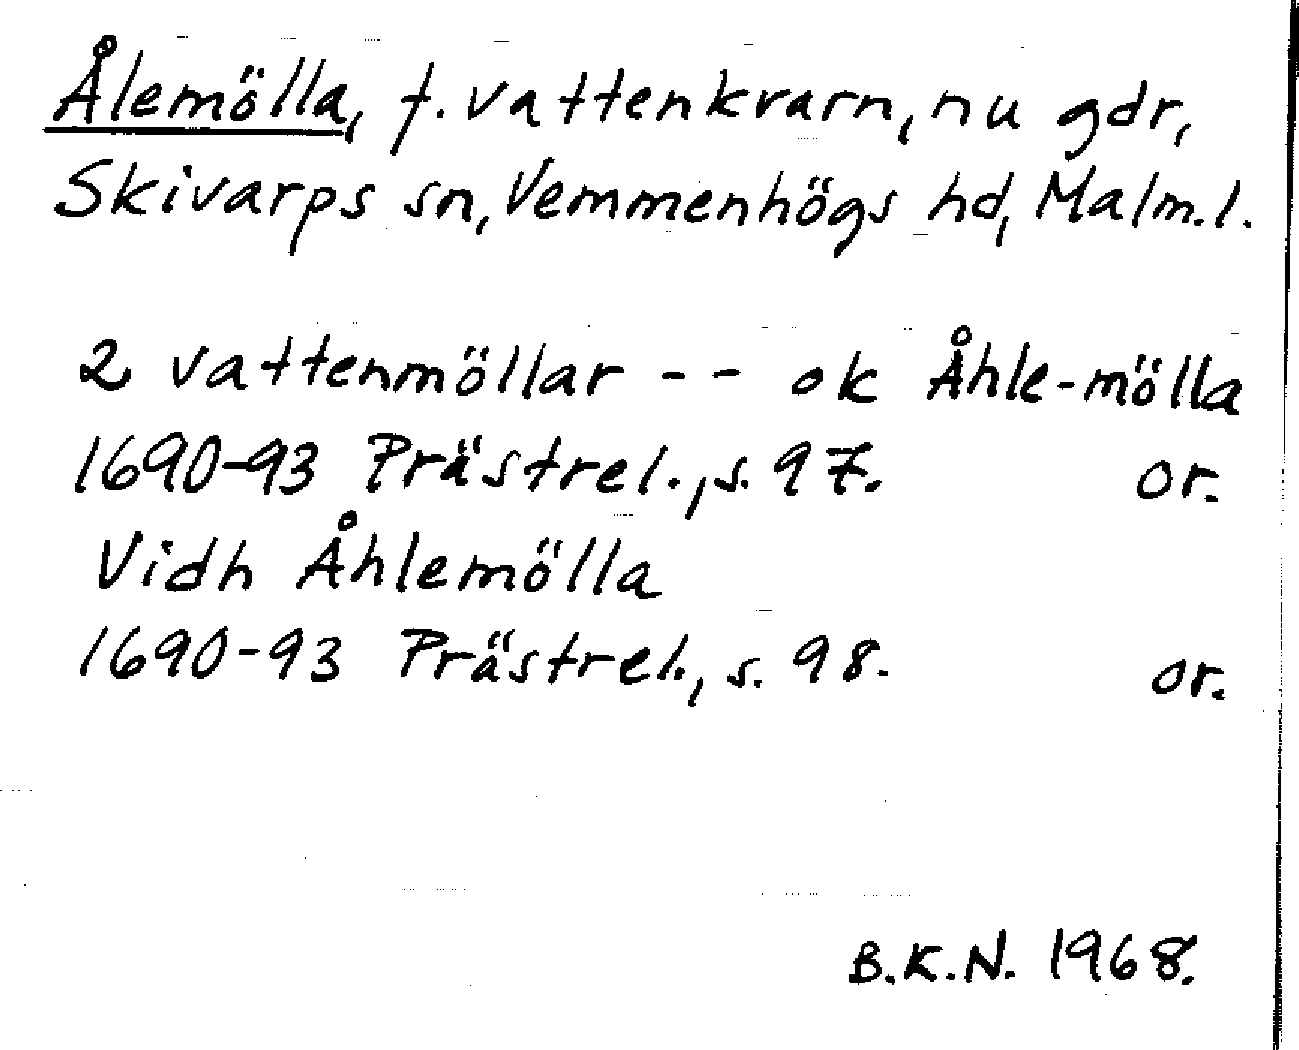 Ålemölla, f. vattenkvarn, nu gdr,
Skivarps sn, Vemmenhögs hd, Malm. l.
2 vattenmöllar -- ok Åhle-mölla
1690-93 Prästrel., s. 97. or.
Vidh Åhlemölla
1690-93 Prästrel., s. 98. or.
B.K.N. 1968.